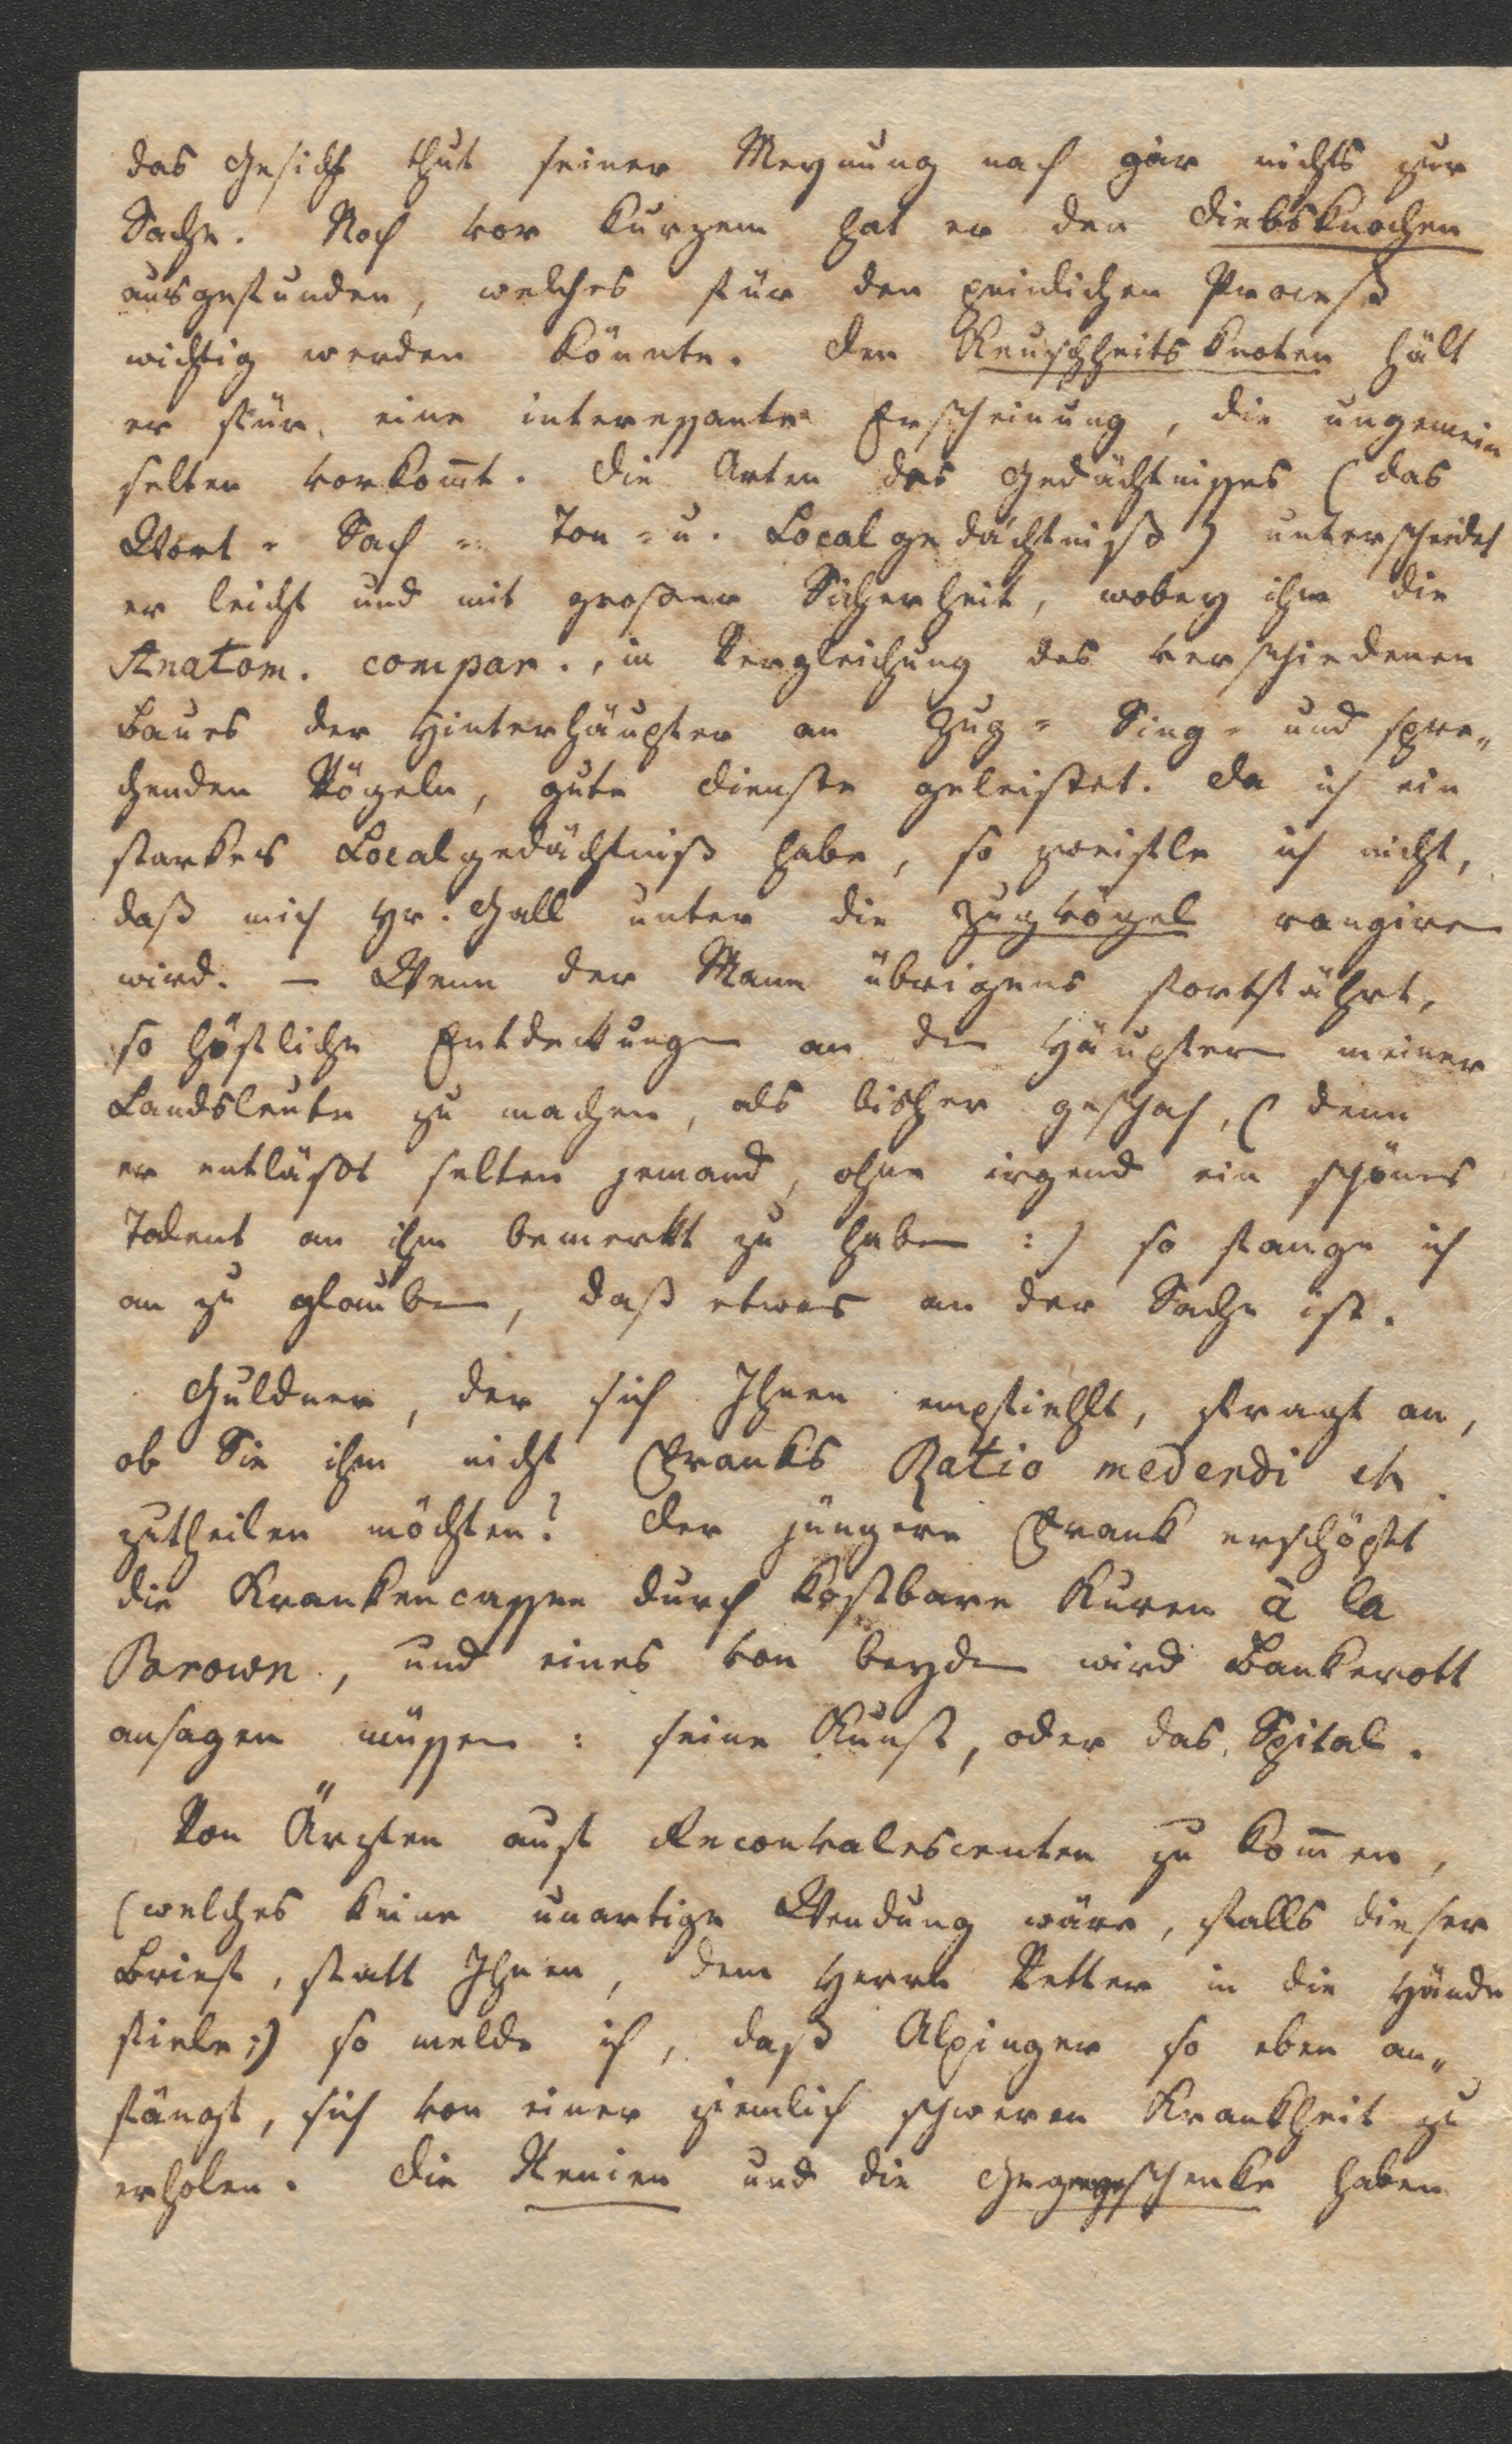 das Gesicht thut seiner Meynung nach gar nichts zur
Sache. Noch vor kurzem hat er den Diebsknochen
ausgefunden, welches für den peinlichen Proceß
wichtig werden könnte. Den Keuschheitsknoten hält
er für eine interessante Erscheinung, die ungemein
selten vorkom̅t. Die Arten des Gedächtnisses (das
Wort- Sach- Ton- u. Localgedächtniß) unterscheidet
er leicht und mit großer Sicherheit, wobey ihm die
Anatom. compar., in Vergleichung des verschiedenen
Baues der Hinterhäupter an Zug- Sing- und spre-
chenden Vögeln, gute Dienste geleistet. Da ich ein
starkes Localgedächtniß habe, so zweifle ich nicht,
daß mich Hr. Gall unter die Zugvögel rangiren
wird. — Wenn der Mann übrigens fortfährt,
so höfliche Entdeckungen an den Häuptern meiner
Landsleute zu machen, als bisher geschah, (denn
er entläßt selten jemand, ohne irgend ein schönes
Talent an ihm bemerkt zu haben :) so fange ich
an zu glauben, daß etwas an der Sache ist.
Guldner, der sich Ihnen empfiehlt, fragt an,
ob Sie ihm nicht Franks Ratio medendi etc.
zutheilen möchten? Der jüngere Frank erschöpft
die Krankencassen durch kostbare Kuren à la
Brown, und eines von beyden wird Bankerott
ansagen müssen: seine Kunst, oder das Spital.
Von Ärzten auf Reconvalescenten zu kom̅en,
(welches keine unartige Wendung wäre, falls dieser
Brief, statt Ihnen, dem Herrn Vetter in die Hände
fiele;) so melde ich, daß Alxinger so eben an-
fängt, sich von einer ziemlich schweren Krankheit zu
erholen. Die Xenien und die Gegengeschenke haben